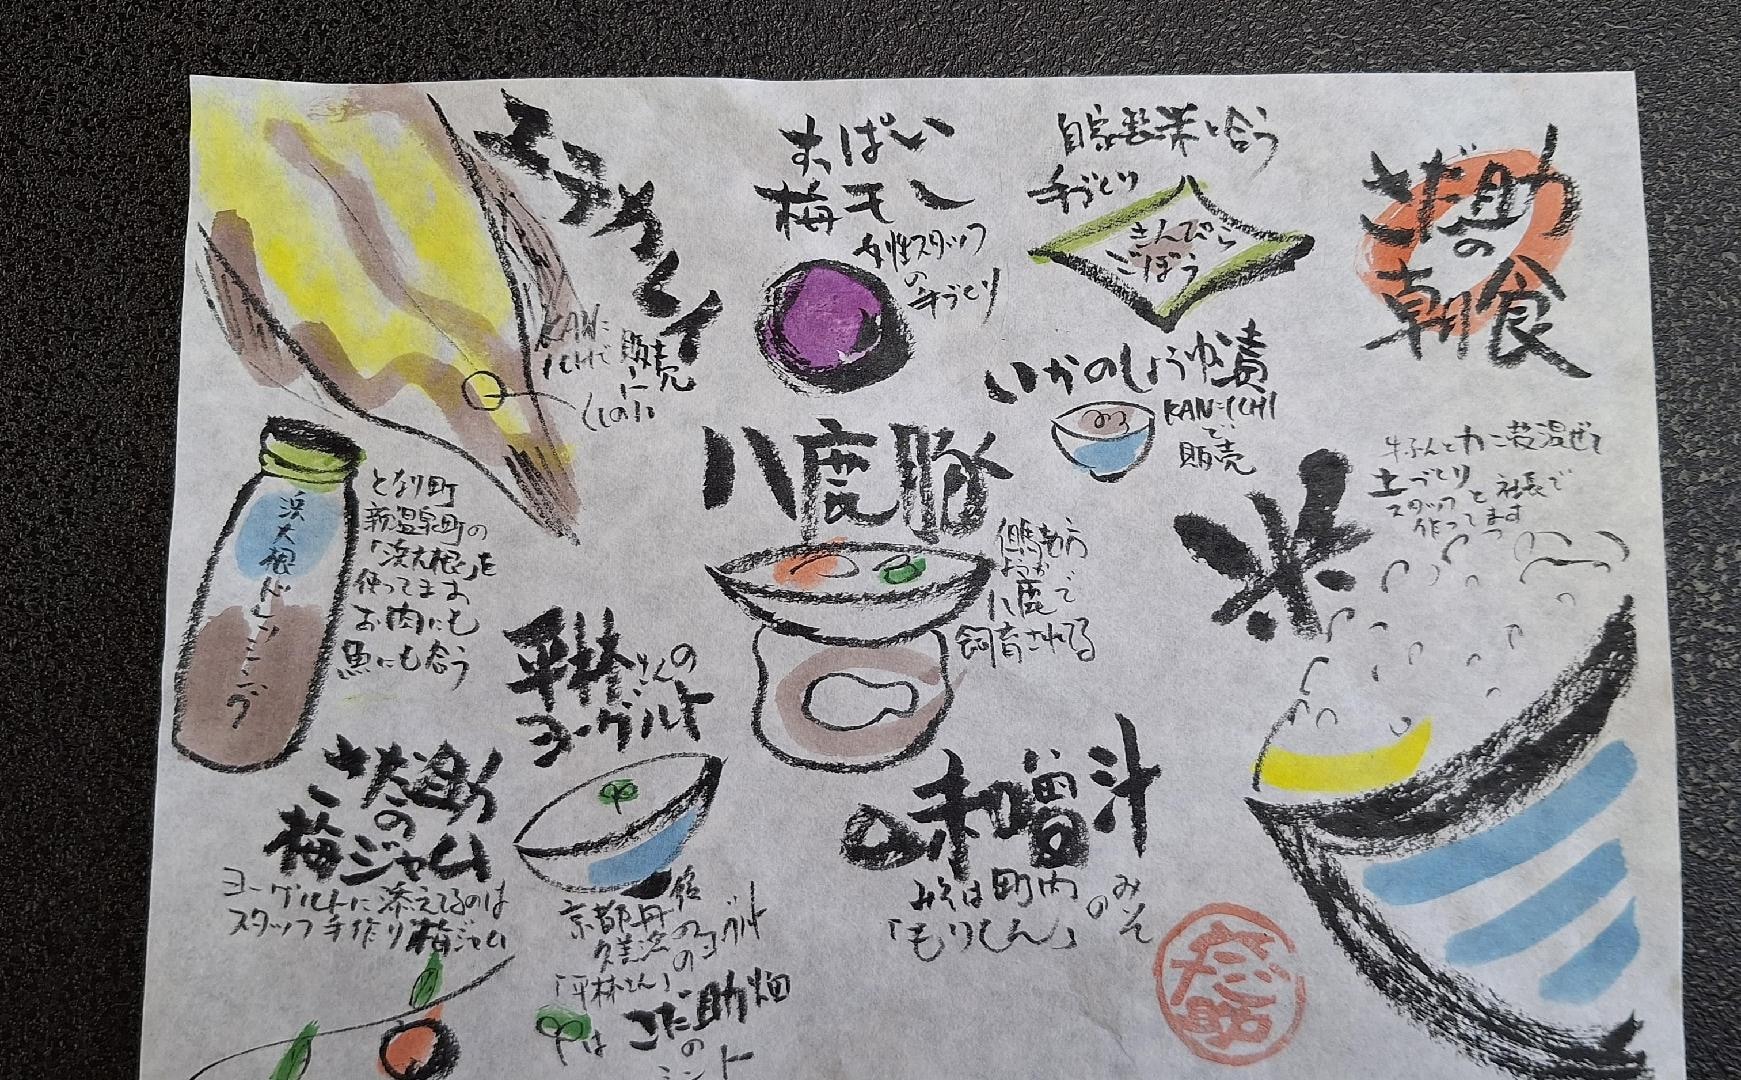 さだ助
の
朝食
自家製米に合う
手づくり
きんぴら
ごぼう
すっぱい
梅干し
女性スタッフ
の
手づくり
いかのしょうゆ漬
KAN-ICHI
で
販売
KAN-
ICHIで
販売
米
牛ふんとカニ殻混ぜて
土づくり
スタッフと社長で
作ってます
八鹿豚
但馬地方
ようか
八鹿で
飼育されてる
浜大根ドレッシング
となり町
新温泉町の
「浜大根」を
使ってます
お肉にも
魚にも合う
平林さんの
ヨーグルト
さだ助
の
梅ジャム
ヨーグルトに添えてるのは
スタッフ手作り梅ジャム
京都丹後
久美浜の
「平林さん」
のヨーグルト
は さだ助畑
の
ミント
の味噌汁
みそは町内
「もりもん」
のみそ